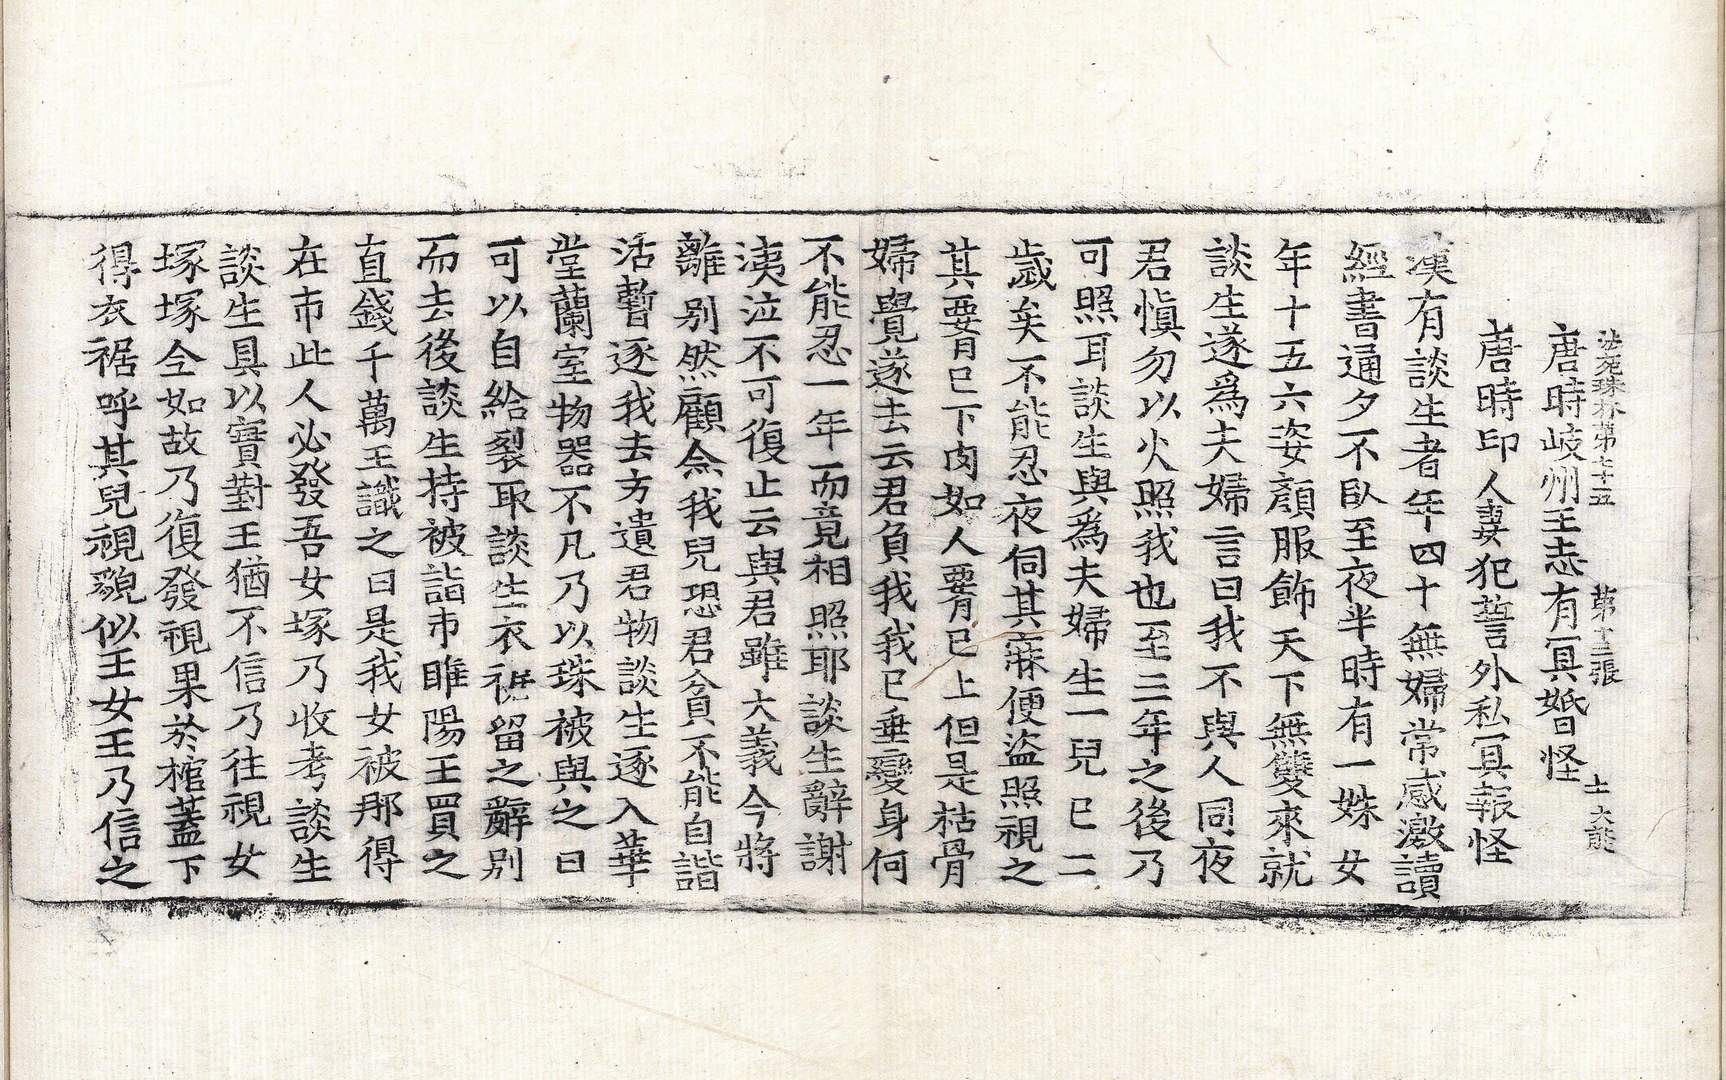 法苑珠林第七十五　第十三張　士　大能
唐時岐州王志有冥婚怪
唐時印人妻犯誓外私冥報怪
漢有談生者年四十無婦常感激讀
經書通夕不臥至夜半時有一姝女
年十五六姿顏服飾天下無雙來就
談生遂爲夫婦言曰我不與人同夜
君慎勿以火照我也至三年之後乃
可照耳談生與爲夫婦生一兒已二
歲矣不能忍夜伺其寐便盜照視之
其腰已下肉如人腰已上但是枯骨
婦覺遂去云君負我我已垂變身何
不能忍一年而竟相照耶談生辭謝
洟泣不可復止云與君雖大義今將
離別然顧念我兒恐君貧不能自諧
活暫逐我去方遺君物談生逐入華
堂蘭室物器不凡乃以珠被與之曰
可以自給裂取談生衣裾留之辭別
而去後談生持被詣市睢陽王買之
直錢千萬王識之曰是我女被那得
在市此人必發吾女塚乃收考談生
談生具以實對王猶不信乃往視女
塚塚全如故乃復發視果於棺蓋下
得衣裾呼其兒視貌似王女王乃信之